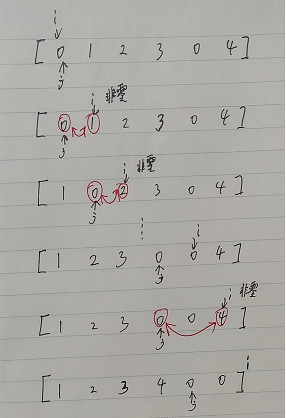 i
[ 0 1 2 3 0 4 ]
j
i 非零
[ 0 1 2 3 0 4 ]
j
i 非零
[ 1 0 2 3 0 4 ]
j
i
[ 1 2 3 0 0 4 ]
j
i 非零
[ 1 2 3 0 0 4 ]
j
i
[ 1 2 3 4 0 0 ]
j